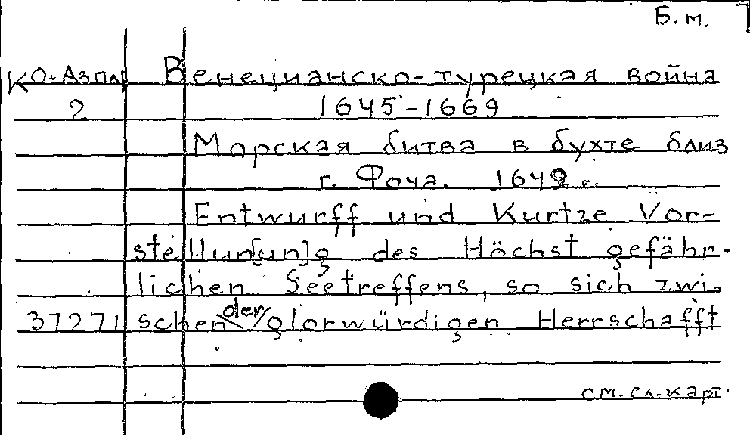 Б.м.
КО-Азпл Венецианско-турецкая война
2 1645-1669
Морская битва в бухте близ
г. Фоча. 1649 г.
Entwurff und Kurtze Vor-
stellun[un]g des Höchst gefähr-
lichen Seetreffens, so sich zwi-
37271 schen der glorwürdigen Herrschafft
см. сл. карт.